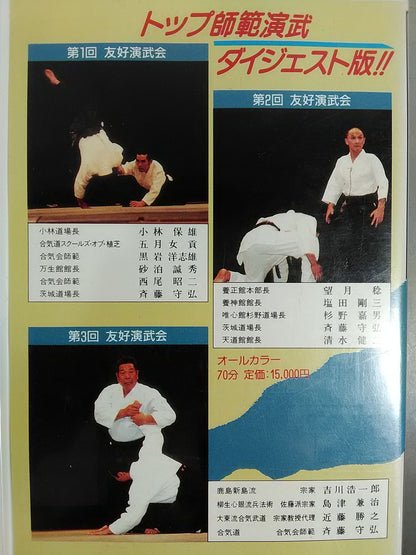 トップ師範演武
ダイジェスト版!!
第1回 友好演武会
小林道場長 小林保雄
合気道スクールズ・オブ・植芝 五月女貢
合気会師範 黒岩洋志雄
万生館館長 砂泊誠秀
合気会師範 西尾昭二
茨城道場長 斉藤守弘
第2回 友好演武会
養正館本部長 望月稔
養神館館長 塩田剛三
唯心館杉野道場長 杉野嘉男
茨城道場長 斉藤守弘
天道館館長 清水健二
オールカラー
70分 定価:15,000円
第3回 友好演武会
鹿島新當流 宗家 吉川浩一郎
柳生心眼流兵法術 佐藤派宗家 島津兼治
大東流合気武道 宗家教授代理 近藤勝之
合気道 合気会師範 斉藤守弘